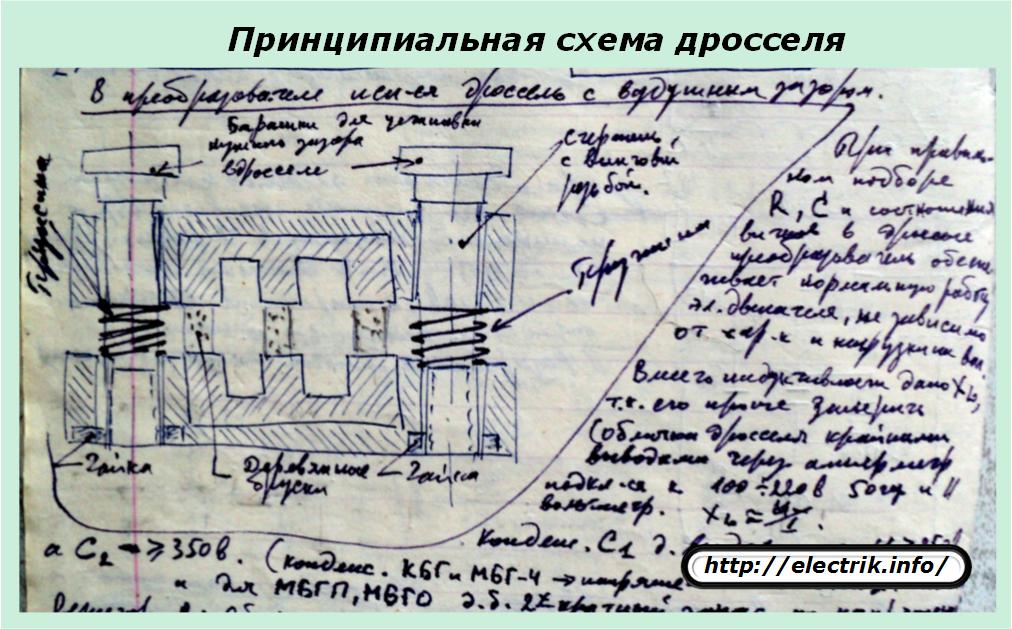 Принципиальная схема дросселя
В преобразователе исп-ся дроссель с воздушным зазором.
Барашки для установки
нужного зазора
в дросселе
Стержень
с винтовой
резьбой.
Пружина
Пружины
При правиль-
ном подборе
R, C и соотношения
витков в дросселе
преобразователь обеспе-
чивает нормальную работу
эл. двигателя, не зависимо
от хар-к и нагрузки на вал.
Вместо индуктивности дано XL,
т.к. его проще замерить
(обмотки дросселя крайними
выводами через амперметр
подкл-ся к 100÷220в 50гц и ||
вольтметр.
XL =
Гайка
Деревянные
бруски
Гайка
а C2 → ≥350в. (конденс. КБГ и МБГ-4 → напряже
конденс. C1 д.
и для МБГП, МБГО д.б. 2х кратный запас
http://electrik.info/